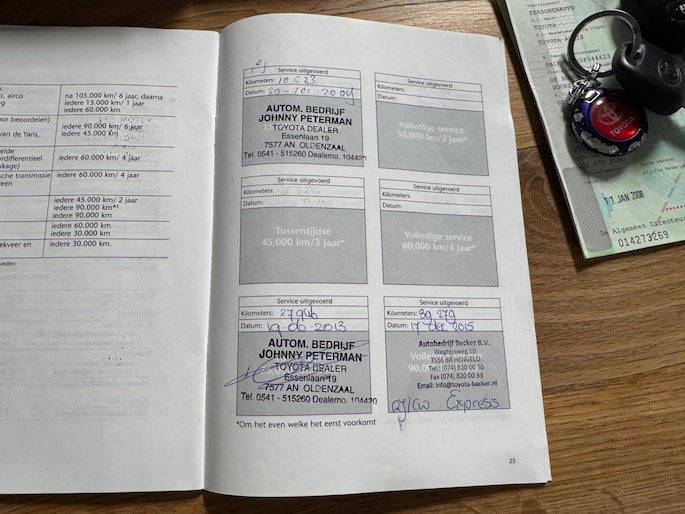 , airco
na 105.000 km/ 6 jaar, daarna
iedere 15.000 km/ 1 jaar
iedere 60.000 km
or beoordelen)
iedere 90.000 km/ 6 jaar
van de Yaris,
iedere 45.000 km
elde
ordifferentieel
kkage)
iedere 60.000 km/ 4 jaar
sche transmissie
reen
iedere 60.000 km/ 4 jaar
iedere 45.000 km/ 2 jaar
iedere 90.000 km*³
iedere 90.000 km
iedere 60.000 km
iedere 30.000 km
ekveer en
iedere 30.000 km.
veden
Service uitgevoerd
Kilometers: 10623
Datum: 20-10-2009
AUTOM. BEDRIJF
JOHNNY PETERMAN
TOYOTA DEALER
Essenlaan 19
7577 AN OLDENZAAL
Tel. 0541 - 515260 Dealerno. 104420
Service uitgevoerd
Kilometers:
Datum:
Volledige service
30,000 km/2 jaar*
Service uitgevoerd
Kilometers:
Datum:
Tussentijdse
45,000 km/3 jaar*
Service uitgevoerd
Kilometers:
Datum:
Volledige service
60,000 km/4 jaar*
Service uitgevoerd
Kilometers: 27946
Datum: 19-06-2013
AUTOM. BEDRIJF
JOHNNY PETERMAN
TOYOTA DEALER
Essenlaan 19
7577 AN OLDENZAAL
Tel. 0541 - 515260 Dealerno. 104420
Service uitgevoerd
Kilometers: 39 279
Datum: 17 dec 2015
Autobedrijf Becker B.V.
Wegtersweg 10
7556 BR HENGELO
Tel.: (074) 820 00 30
Fax (074) 820 00 33
Email: info@toyota-becker.nl
Express
*Om het even welke het eerst voorkomt
25
PERSONENAUTO
TOYOTA
TOYOTA
11 JAN 2008
De Algemeen Directeur
014273269